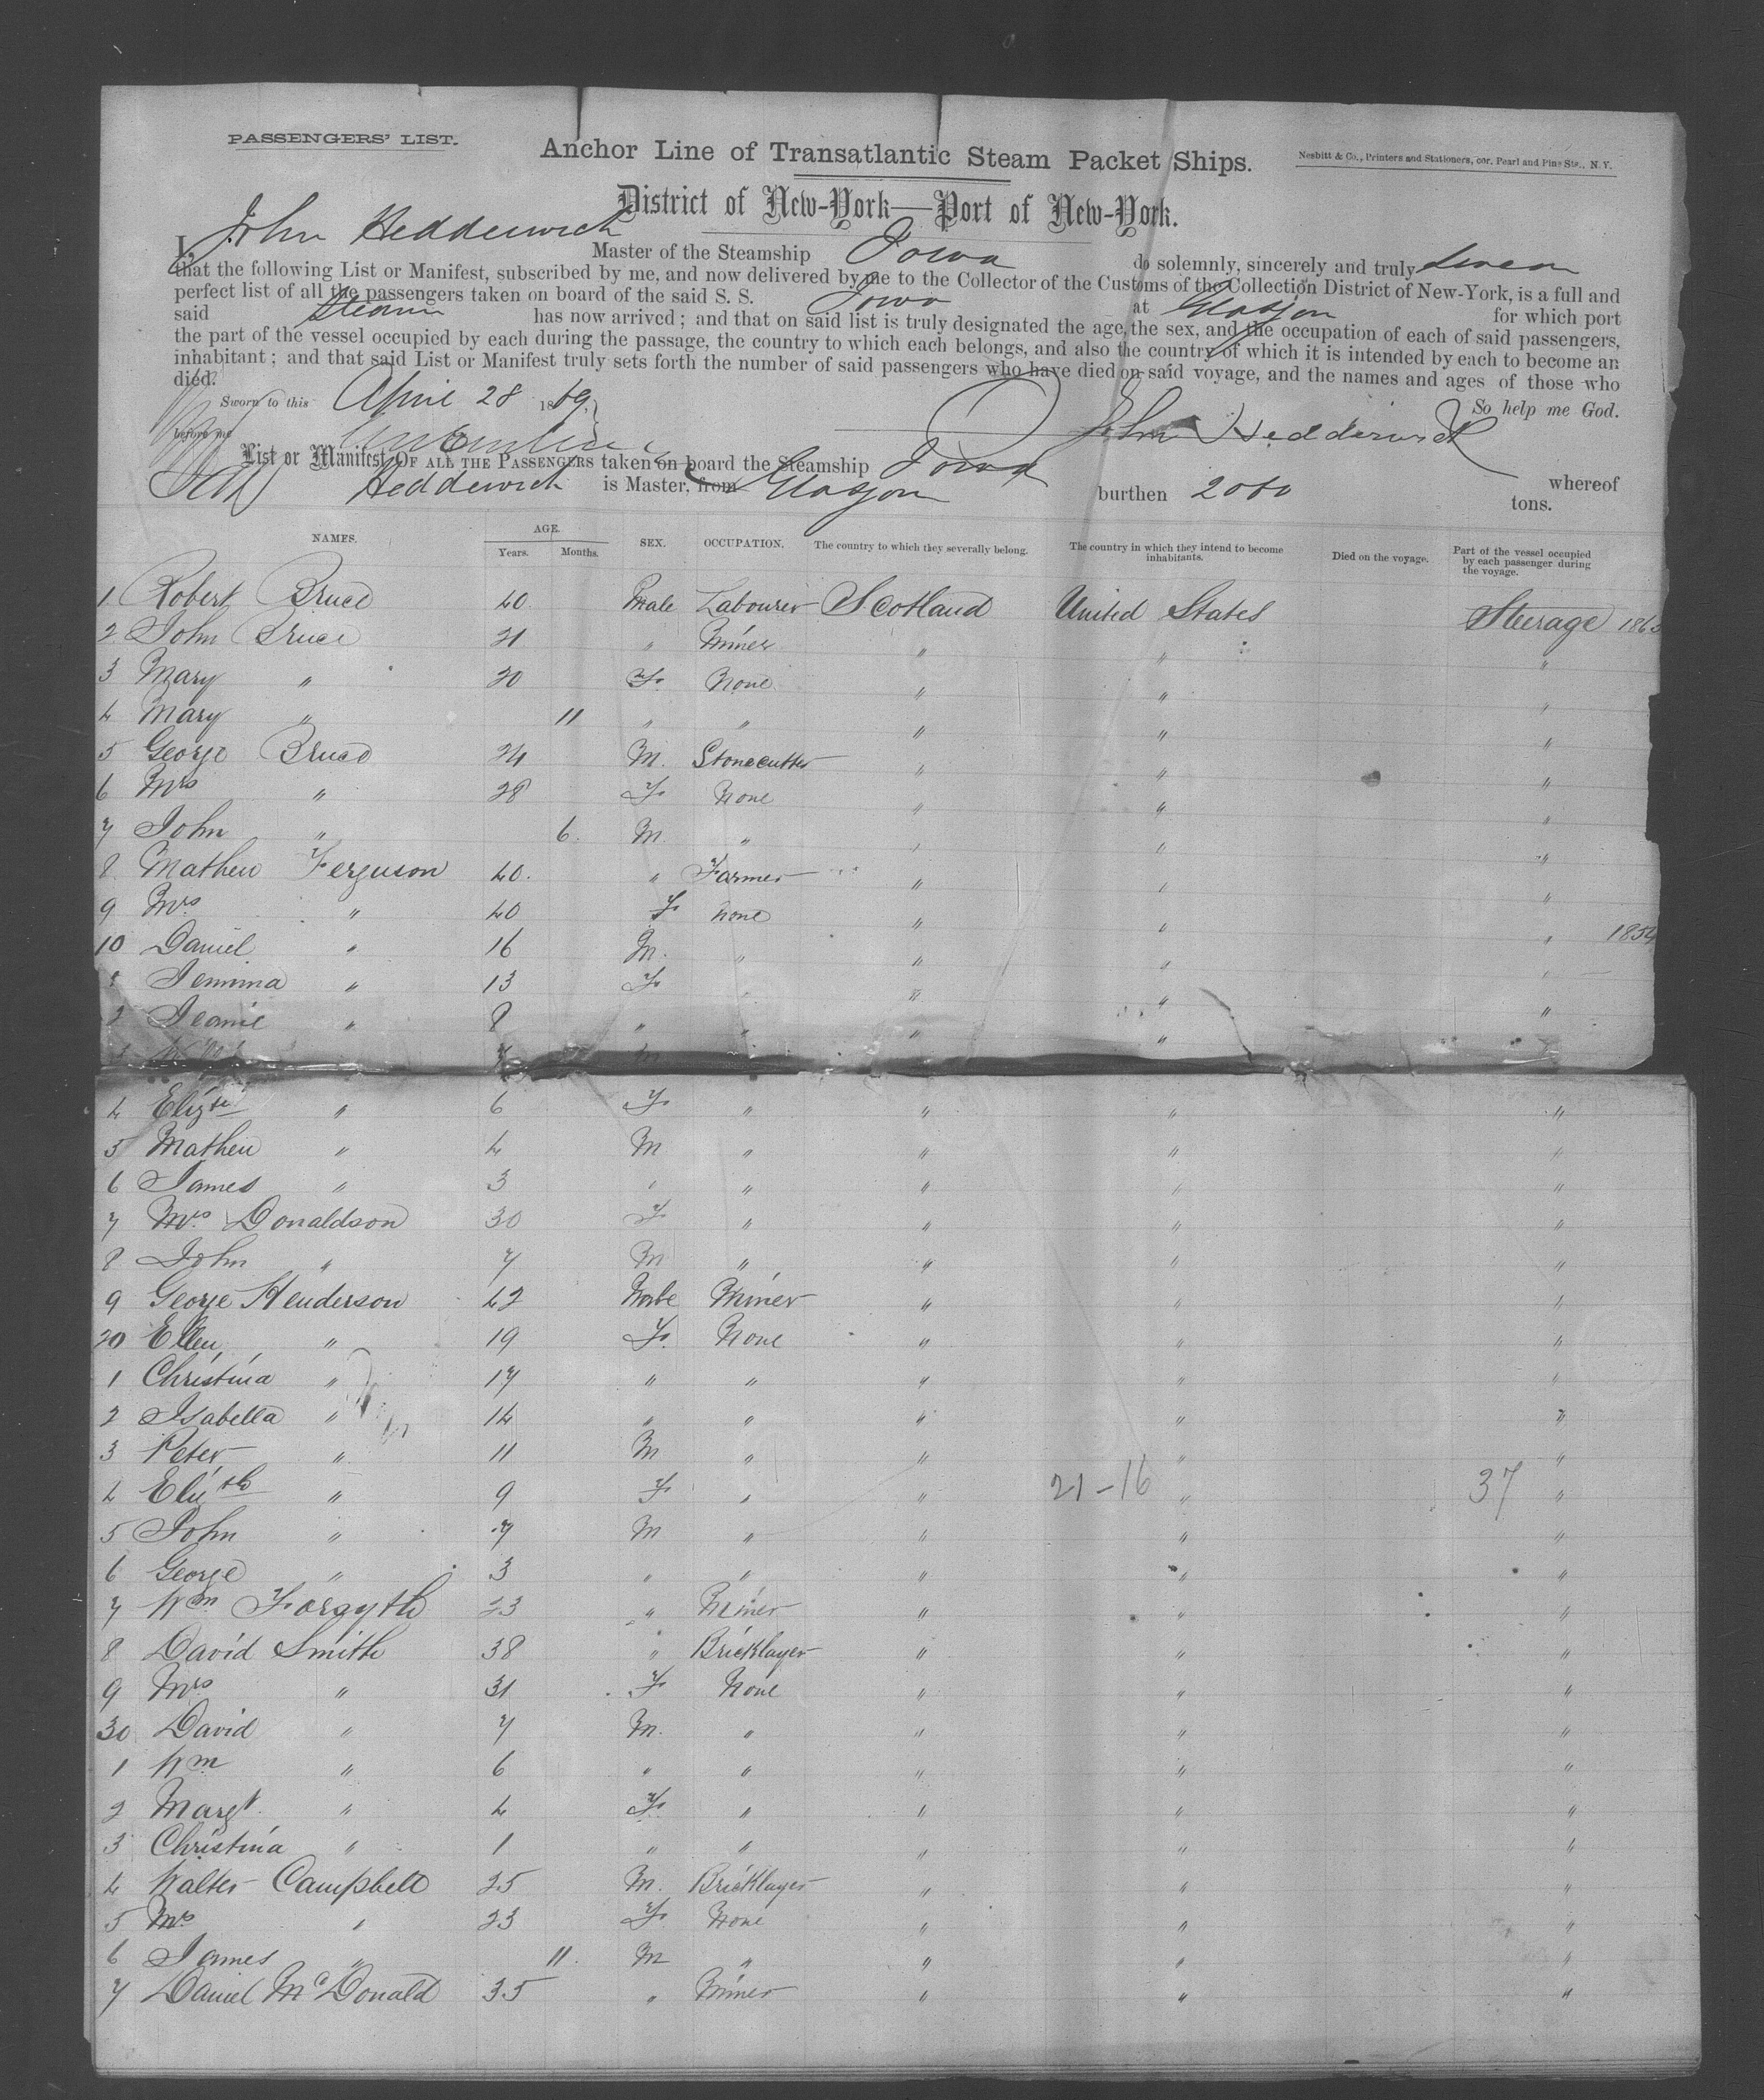 PASSENGERS' LIST.
Anchor Line of Transatlantic Steam Packet Ships.
Nesbitt & Co., Printers and Stationers, cor. Pearl and Pine Sts., N. Y.
District of New-York—Port of New-York.
I, John Hedderwick Master of the Steamship Iowa do solemnly, sincerely and truly swear
that the following List or Manifest, subscribed by me, and now delivered by me to the Collector of the Customs of the Collection District of New-York, is a full and
perfect list of all the passengers taken on board of the said S. S. Iowa at Glasgow for which port
said Steamer has now arrived; and that on said list is truly designated the age, the sex, and the occupation of each of said passengers,
the part of the vessel occupied by each during the passage, the country to which each belongs, and also the country of which it is intended by each to become an
inhabitant; and that said List or Manifest truly sets forth the number of said passengers who have died on said voyage, and the names and ages of those who
died.
So help me God.
Sworn to this April 28 1869,
before me John Hedderwick
List or Manifest OF ALL THE PASSENGERS taken on board the Steamship Iowa whereof
Hedderwick is Master, from Glasgow burthen 2000 tons.
NAMES. AGE. Years. Months. SEX. OCCUPATION. The country to which they severally belong. The country in which they intend to become inhabitants. Died on the voyage. Part of the vessel occupied by each passenger during the voyage.
1 Robert Bruce 40 Male Labourer Scotland United States Steerage 186
2 John Bruce 21 " Miner " " "
3 Mary " 20 F. None " " "
4 Mary " 11 " " " " "
5 George Bruce 24 M. Stonecutter " " "
6 Mrs " 28 F. None " " "
7 John " 6. M. " " " "
8 Mathew Ferguson 40. " Farmer " " "
9 Mrs " 40 F. None " " "
10 Daniel " 16 M. " " " " 1854
1 Jemima " 13 F. " " " "
2 Jeanie " 8 " " " " "
3 M
4 Elizth " 6 F. " " " "
5 Mathew " 4 M " " " "
6 James " 3 " " " " "
7 Mrs Donaldson 30 F " " " "
8 John " 7 M " " " "
9 George Henderson 42 Male Miner " " "
20 Ellen " 19 F. None " " "
1 Christina " 17 " " " " "
2 Isabella " 14 " " " " "
3 Peter " 11 M " " " "
4 Elizth " 9 F " " 21-16 " 37 "
5 John " 7 M " " " "
6 George " 3 " " " " "
7 Wm Forsyth 23 " Miner " " "
8 David Smith 38 " Bricklayer " " "
9 Mrs " 31 F. None " " "
30 David " 7 M. " " " "
1 Wm " 6 " " " " "
2 Margt " 4 F. " " " "
3 Christina " 1 " " " " "
4 Walter Campbell 25 M. Bricklayer " " "
5 Mrs " 23 F. None " " "
6 James " 11. M " " " "
7 Daniel McDonald 35 " Miner " " "